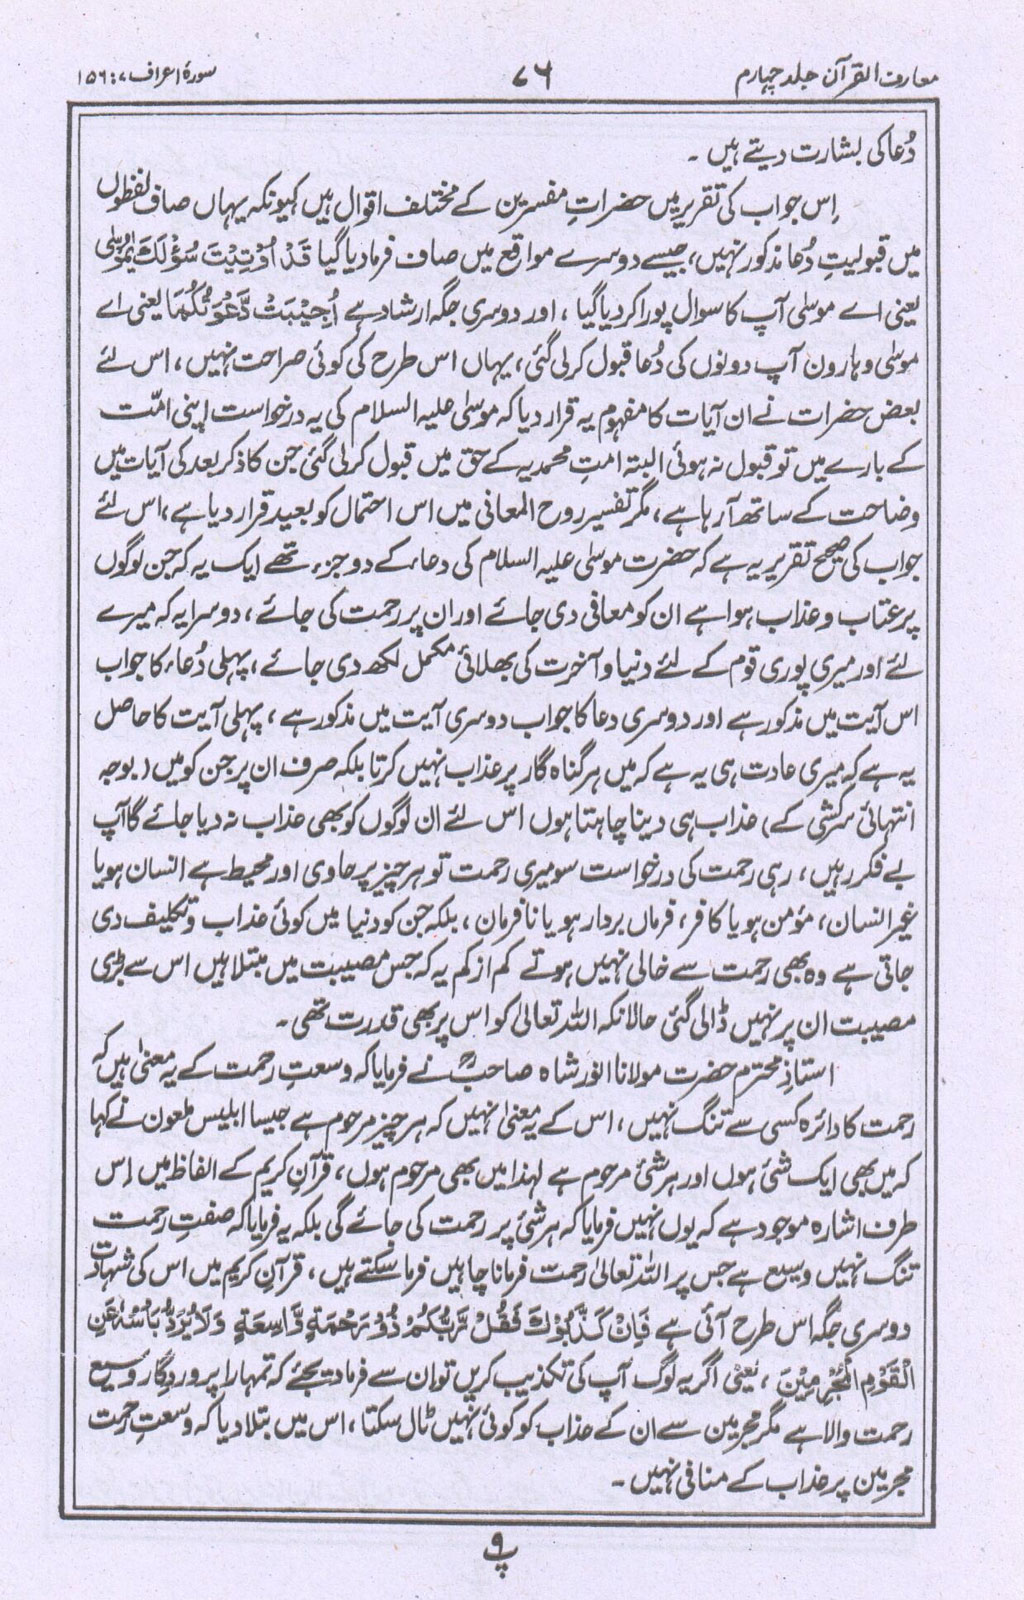 معارف القرآن جلد چہارم
۷۶
سورۂ اعراف ۷: ۱۵۶
دُعا کی بشارت دیتے ہیں ۔
اِس جواب کی تقریر میں حضراتِ مفسرین کے مختلف اقوال ہیں کیونکہ یہاں صاف لفظوں
میں قبولیتِ دُعا مذکور نہیں، جیسے دوسرے مواقع میں صاف فرما دیا گیا قَدْ اُوْتِيْتَ سُؤْلَكَ يٰمُوْسٰى
یعنی اے موسٰی آپ کا سوال پورا کر دیا گیا ، اور دوسری جگہ ارشاد ہے اُجِيْبَتْ دَّعْوَتُكُمَا یعنی اے
موسٰی و ہارون آپ دونوں کی دُعا قبول کر لی گئی، یہاں اس طرح کی کوئی صراحت نہیں، اس لئے
بعض حضرات نے ان آیات کا مفہوم یہ قرار دیا کہ موسٰی علیہ السلام کی یہ درخواست اپنی امّت
کے بارے میں تو قبول نہ ہوئی البتہ امتِ محمدیہ کے حق میں قبول کر لی گئی جن کا ذکر بعد کی آیات میں
وضاحت کے ساتھ آ رہا ہے، مگر تفسیر روح المعانی میں اس احتمال کو بعید قرار دیا ہے، اس لئے
جواب کی صحیح تقریر یہ ہے کہ حضرت موسٰی علیہ السلام کی دعاء کے دو جزء تھے ایک یہ کہ جن لوگوں
پر عتاب و عذاب ہوا ہے ان کو معافی دی جائے اور ان پر رحمت کی جائے ، دوسرا یہ کہ میرے
لئے اور میری پوری قوم کے لئے دنیا و آخرت کی بھلائی مکمل لکھ دی جائے ، پہلی دُعاء کا جواب
اس آیت میں مذکور ہے اور دوسری دعا کا جواب دوسری آیت میں مذکور ہے ، پہلی آیت کا حاصل
یہ ہے کہ میری عادت ہی یہ ہے کہ میں ہر گناہ گار پر عذاب نہیں کرتا بلکہ صرف ان پر جن کو میں (بوجہ
انتہائی سرکشی کے) عذاب ہی دینا چاہتا ہوں اس لئے ان لوگوں کو بھی عذاب نہ دیا جائے گا آپ
بے فکر رہیں ، رہی رحمت کی درخواست سو میری رحمت تو ہر چیز پر حاوی اور محیط ہے انسان ہو یا
غیر انسان، مؤمن ہو یا کافر، فرماں بردار ہو یا نافرمان ، بلکہ جن کو دنیا میں کوئی عذاب و تکلیف دی
جاتی ہے وہ بھی رحمت سے خالی نہیں ہوتے کم از کم یہ کہ جس مصیبت میں مبتلا ہیں اس سے بڑی
مصیبت ان پر نہیں ڈالی گئی حالانکہ اللہ تعالیٰ کو اس پر بھی قدرت تھی ۔
استاذِ محترم حضرت مولانا انور شاہ صاحبؒ نے فرمایا کہ وسعتِ رحمت کے یہ معنیٰ ہیں کہ
رحمت کا دائرہ کسی سے تنگ نہیں ، اس کے یہ معنیٰ نہیں کہ ہر چیز مرحوم ہے جیسا ابلیس ملعون نے کہا
کہ میں بھی ایک شئ ہوں اور ہر شئ مرحوم ہے لہذا میں بھی مرحوم ہوں، قرآنِ کریم کے الفاظ میں اِس
طرف اشارہ موجود ہے کہ یوں نہیں فرمایا کہ ہر شئ پر رحمت کی جائے گی بلکہ یہ فرمایا کہ صفتِ رحمت
تنگ نہیں وسیع ہے جس پر اللہ تعالیٰ رحمت فرمانا چاہیں فرما سکتے ہیں ، قرآنِ کریم میں اس کی شہادت
دوسری جگہ اس طرح آئی ہے فَاِنْ كَذَّبُوْكَ فَقُلْ رَّبُّكُمْ ذُوْ رَحْمَةٍ وَّاسِعَةٍ وَلَا يُرَدُّ بَأْسُهٗ عَنِ
الْقَوْمِ الْمُجْرِمِيْنَ ، یعنی اگر یہ لوگ آپ کی تکذیب کریں تو ان سے فرما دیجئے کہ تمہارا پروردگار وسیع
رحمت والا ہے مگر مجرمین سے ان کے عذاب کو کوئی نہیں ٹال سکتا، اس میں بتلا دیا کہ وسعتِ رحمت
مجرمین پر عذاب کے منافی نہیں ۔
پ ۹